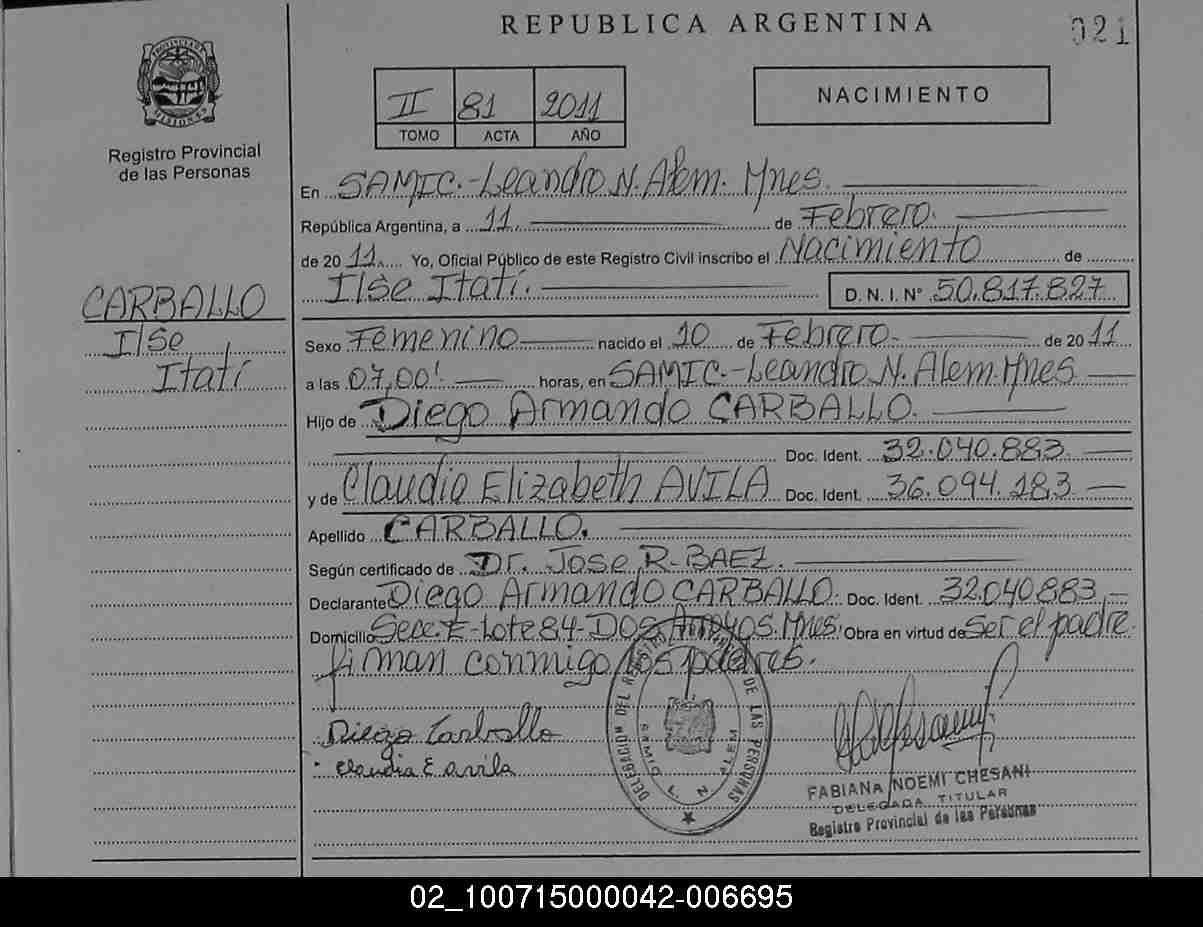 REPUBLICA ARGENTINA
021
PROVINCIA DE MISIONES
Registro Provincial
de las Personas
II 81 2011
TOMO ACTA AÑO
NACIMIENTO
En SAMIC.-Leandro N. Alem. Mnes.
República Argentina, a 11. de Febrero.
de 20 11. Yo, Oficial Público de este Registro Civil inscribo el Nacimiento de
Ilse Itatí. D.N.I. N° 50.817.827
CARBALLO
Ilse
Itatí
Sexo Femenino nacido el 10 de Febrero. de 20 11
a las 07,00' horas, en SAMIC.-Leandro N. Alem. Mnes
Hijo de Diego Armando CARBALLO.
Doc. Ident. 32.040.883
y de Claudia Elizabeth AVILA Doc. Ident. 36.094.183
Apellido CARBALLO.
Según certificado de Dr. Jose R. BAEZ.
Declarante Diego Armando CARBALLO. Doc. Ident. 32.040.883
Domicilio Secc. E-Lote 84-DOS Arroyos. Mnes. Obra en virtud de Ser el padre.
firman conmigo los padres.
Diego Carballo
Claudia E avila
DELEGACION DEL REGISTRO DE LAS PERSONAS
SAMIC L. N. ALEM
FABIANA NOEMI CHESANI
DELEGADA TITULAR
Registro Provincial de las Personas
02_100715000042-006695